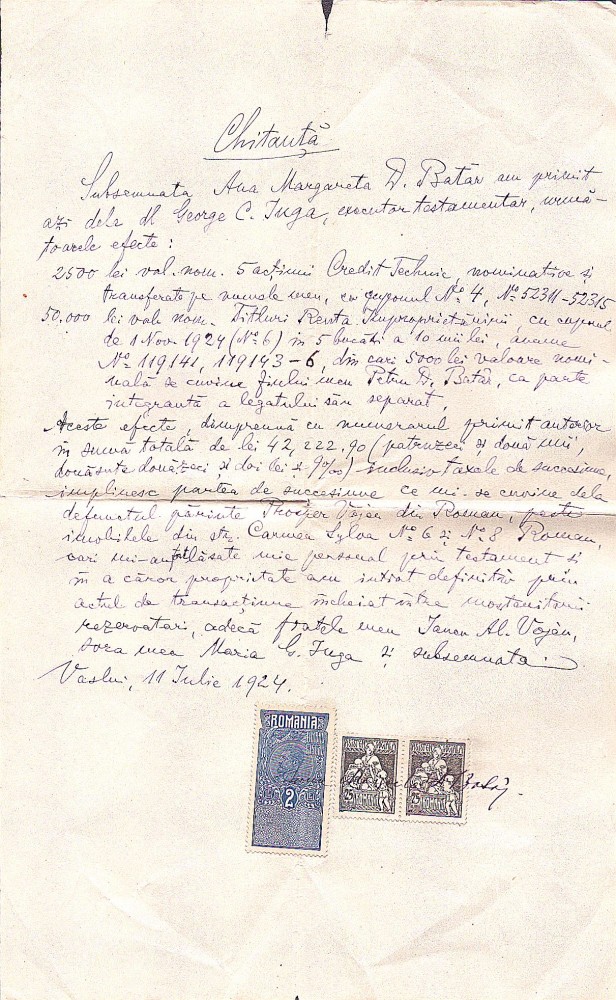 Chitanță
Subsemnata Ana Margareta D. Batăr am primit
azi dela dl George C. Juga, executor testamentar, urmă-
toarele efecte:
2500 lei val. nom. 5 acțiuni Credit Technic, nominative și
transferate pe numele meu, cu cuponul No. 4, No. 52311-52315
50,000 lei val. nom. Titluri Renta Împroprietăririi, cu cuponul
de 1 Nov. 1924 (No 6) în 5 bucăți a 10 mii lei, anume
No. 119141, 119143-6, din cari 5000 lei valoare nomi-
nală se cuvine fiului meu Petru D. Batăr, ca parte
integrantă a legatului său separat,
Aceste efecte, dimpreună cu numerarul primit anterior
în suma totală de lei 42,222.90 (patruzeci și două mii,
douăsute douăzeci și doi lei și 90%) inclusiv taxele de succesiune,
împlinesc partea de succesiune ce mi-se cuvine dela
defunctul părinte Vojen din Roman,
imobilele din str. Carmen Sylva No. 6 și No. 8 Roman,
cari mi-au fost lăsate mie personal prin testament și
în a căror proprietate am intrat definitiv prin
actul de transacțiune încheiat între moștenitorii
rezervatari, adecă fratele meu Iancu Al. Vojen,
sora mea Maria G. Juga și subsemnata.
Vaslui, 11 Iulie 1924.
ROMANIA
2
25
25